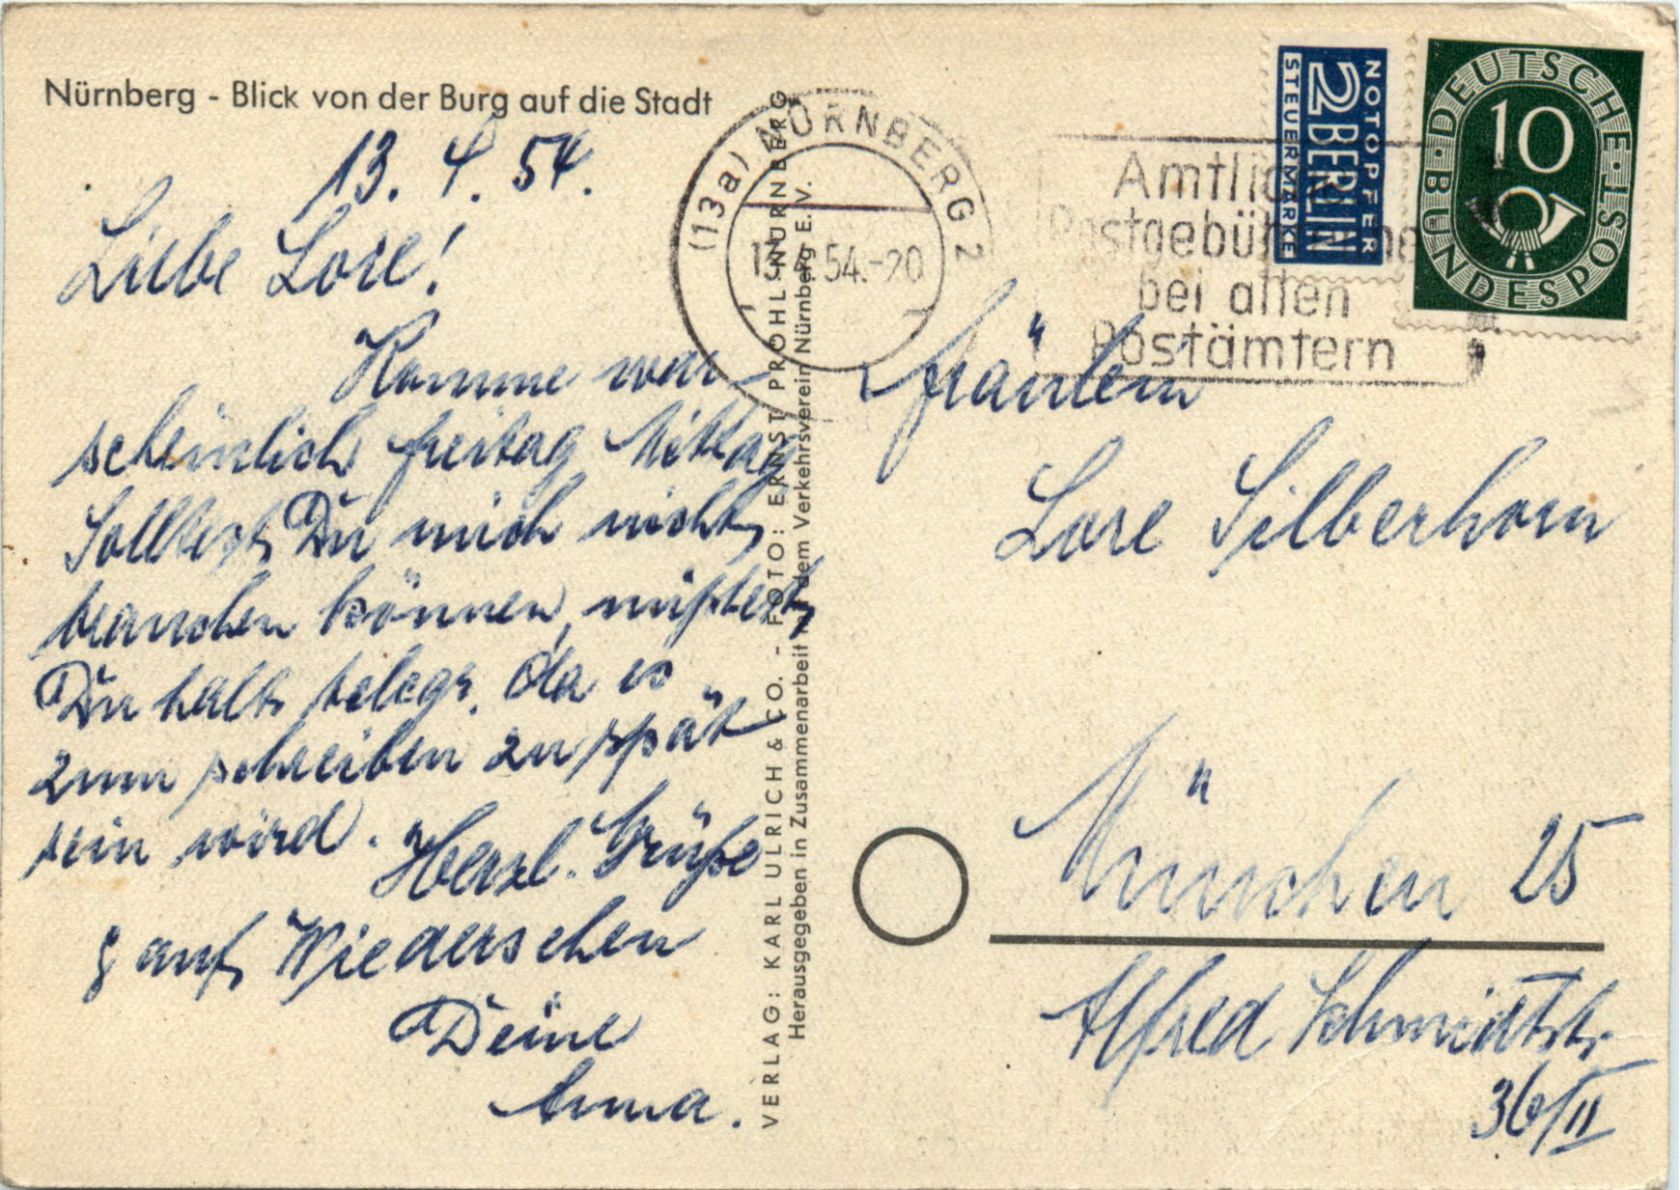 Nürnberg - Blick von der Burg auf die Stadt
13. 4. 54.
Liebe Lore!
Komme war
scheinlich freitag Mittag
Solltest Du mich nicht
brauchen können, müßtest
Du halt telegr. da es
zum schreiben zu spät
sein wird. Herzl. Grüße
& auf Wiedersehen
Deine
Anna.
VERLAG: KARL ULRICH & CO. - FOTO: ERNST PROHL, NÜRNBERG
Herausgegeben in Zusammenarbeit mit dem Verkehrsverein Nürnberg E. V.
(13a) NÜRNBERG 2
13.4.54.-20
Amtliche
Postgebühren
bei allen
Postämtern
NOTOPFER
2 BERLIN
STEUERMARKE
DEUTSCHE BUNDESPOST
10
Fräulein
Lore Silberhorn
München 25
Alfred Schmidtstr.
36/II